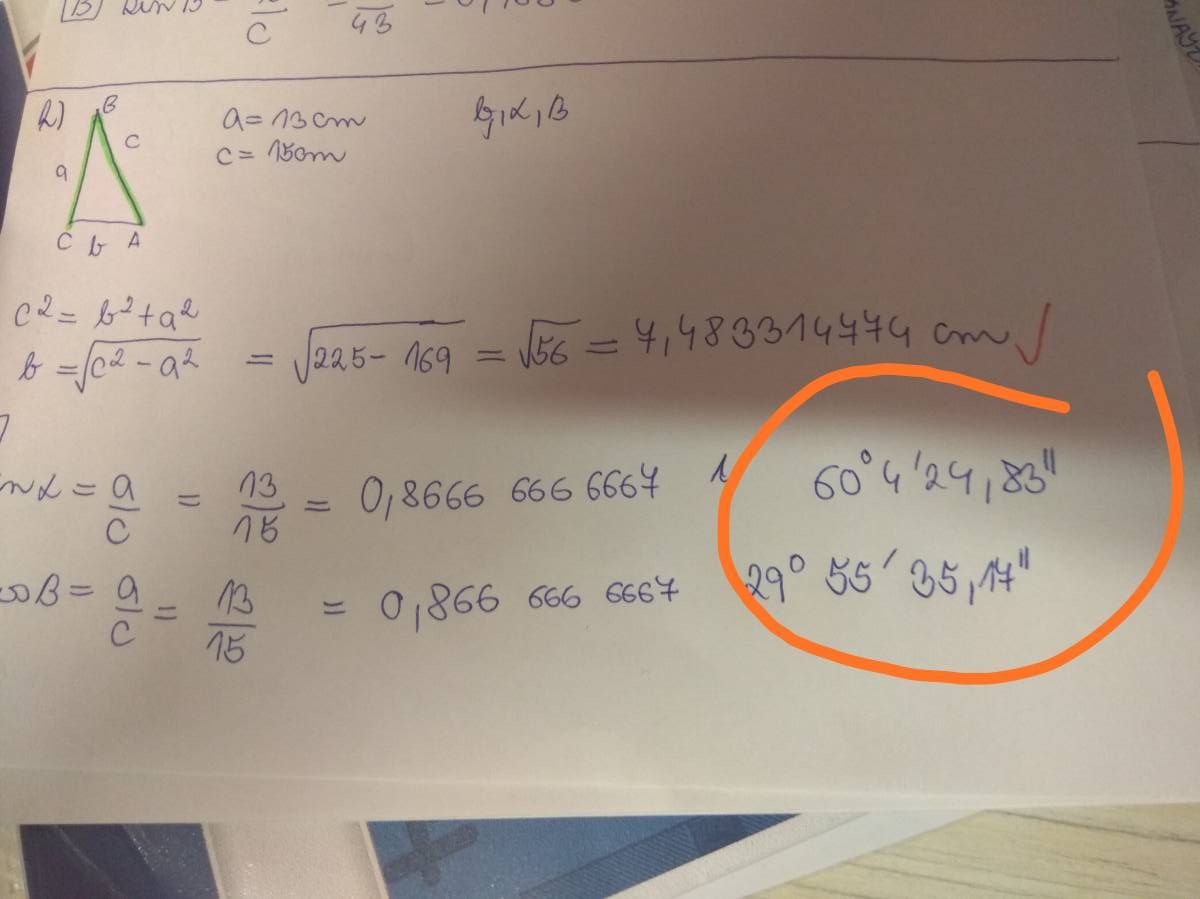 B sin B = — = — = 0,
C 43
h) B a = 13 cm b, α, B
c
a c = 15 cm
C b A
c² = b² + a²
b = √c² - a² = √225 - 169 = √56 = 7,483314774 cm √
nα = a/c = 13/15 = 0,8666 666 6667 60° 4' 24,83"
cos B = a/c = 13/15 = 0,866 666 6667 29° 55' 35,17"